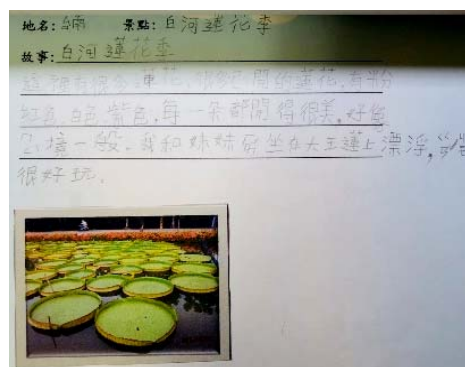 地名:台南 景點:白河蓮花季
故事:白河蓮花季
這裡有很多蓮花,盛開的蓮花,有粉
紅色,白色,紫色,每一朵都開得很美,好像
仙境一般。我和妹妹坐在大王蓮上漂浮,
很好玩。